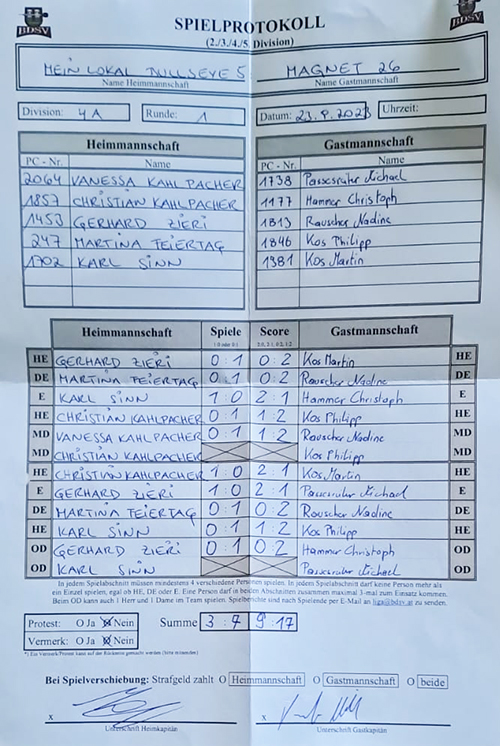 BDSV SPIELPROTOKOLL BDSV
(2./3./4./5. Division)
MEIN LOKAL BULLSEYE 5 MAGNET 26
Name Heimmannschaft Name Gastmannschaft
Division: 4A Runde: 1 Datum: 23.9.2023 Uhrzeit:
Heimmannschaft Gastmannschaft
PC - Nr. Name PC - Nr. Name
2064 VANESSA KAHLPACHER 1738 Passesruher Michael
1857 CHRISTIAN KAHLPACHER 1177 Hammer Christoph
1453 GERHARD ZIERI 1813 Rauscher Nadine
247 MARTINA FEIERTAG 1846 Kos Philipp
1702 KARL SINN 1381 Kos Martin
Heimmannschaft Spiele Score Gastmannschaft
1:0 oder 0:1 2:0, 2:1, 0:2, 1:2
HE GERHARD ZIERI 0:1 0:2 Kos Martin HE
DE MARTINA FEIERTAG 0:1 0:2 Rauscher Nadine DE
E KARL SINN 1:0 2:1 Hammer Christoph E
HE CHRISTIAN KAHLPACHER 0:1 1:2 Kos Philipp HE
MD VANESSA KAHLPACHER 0:1 1:2 Rauscher Nadine MD
MD CHRISTIAN KAHLPACHER Kos Philipp MD
HE CHRISTIAN KAHLPACHER 1:0 2:1 Kos Martin HE
E GERHARD ZIERI 1:0 2:1 Passesruher Michael E
DE MARTINA FEIERTAG 0:1 0:2 Rauscher Nadine DE
HE KARL SINN 0:1 1:2 Kos Philipp HE
OD GERHARD ZIERI 0:1 0:2 Hammer Christoph OD
OD KARL SINN Passesruher Michael OD
In jedem Spielabschnitt müssen mindestens 4 verschiedene Personen spielen. In jedem Spielabschnitt darf keine Person mehr als
ein Einzel spielen, egal ob HE, DE oder E. Eine Person darf in beiden Abschnitten zusammen maximal 3-mal zum Einsatz kommen.
Beim OD kann auch 1 Herr und 1 Dame im Team spielen. Spielberichte sind nach Spielende per E-Mail an liga@bdsv.at zu senden.
Protest: O Ja O Nein Summe 3:7 9:17
Vermerk: O Ja O Nein
*) Ein Vermerk/Protest kann auf der Rückseite gemacht werden (bitte
Bei Spielverschiebung: Strafgeld zahlt O Heimmannschaft O Gastmannschaft O beide
x x
Unterschrift Heimkapitän Unterschrift Gastkapitän